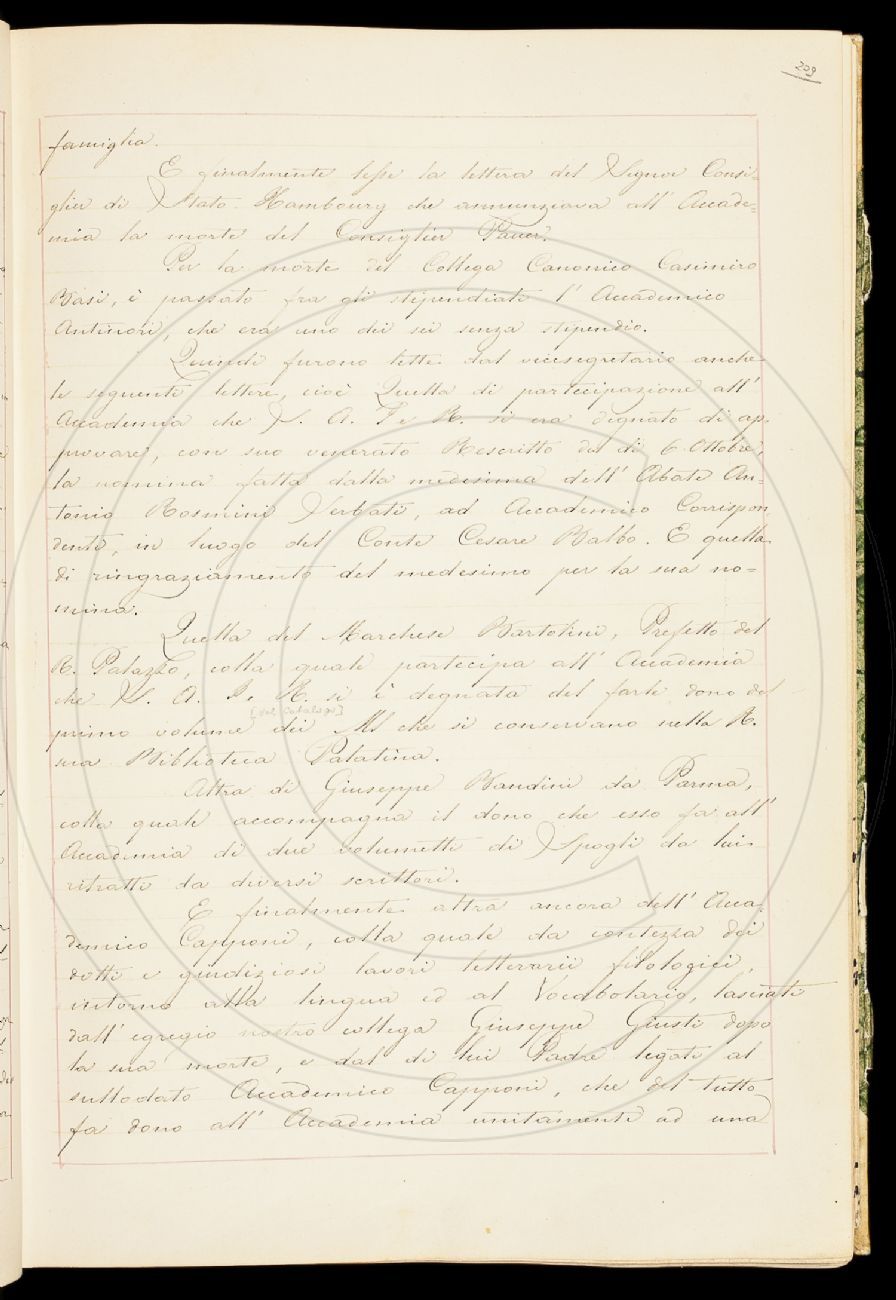 209
famiglia.
E finalmente lesse la lettera del Signor Consi=
glier di Stato Hambourg che annunziava all' Accade=
mia la morte del Consiglier Pauer.
Per la morte del Collega Canonico Casimiro
Basi, è passato fra gli stipendiati l' Accademico
Antinori, che era uno dei sei senza stipendio.
Quindi furono lette dal vicesegretario anche
le seguenti lettere, cioè Quella di partecipazione all'
Accademia che S. A. I. e R. si era degnato di ap=
provare, con suo venerato Rescritto del dì 6 Ottobre,
la nomina fatta dalla medesima dell' Abate An=
tonio Rosmini Serbati, ad Accademico Corrispon=
dente, in luogo del Conte Cesare Balbo. E quella
di ringraziamento del medesimo per la sua no=
mina.
Quella del Marchese Bartolini, Prefetto del
R. Palazzo, colla quale partecipa all' Accademia
che S. A. I. e R. si è degnata del farle dono del
[del Catalogo]
primo volume dei MS. che si conservano nella R.
sua Biblioteca Palatina.
Altra di Giuseppe Bandini da Parma,
colla quale accompagna il dono che esso fa all'
Accademia di due volumetti di Spogli da lui
ritratti da diversi scrittori.
E finalmente altra ancora dell' Acca=
demico Capponi, colla quale da contezza dei
dotti e giudiziosi lavori letterarii filologici,
intorno alla lingua ed al Vocabolario, lasciati
dall' egregio nostro collega Giuseppe Giusti dopo
la sua morte, e dal di lui Padre legati al
sullodato Accademico Capponi, che del tutto
fa dono all' Accademia unitamente ad una